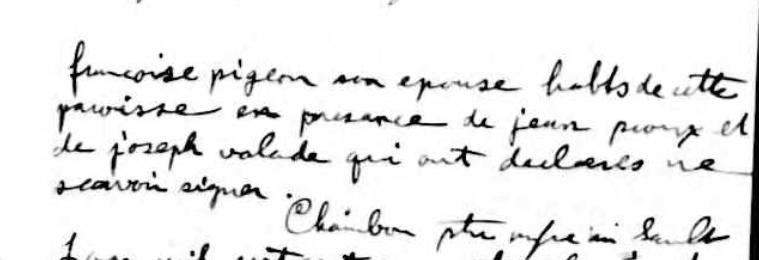 francoise pigeon son epouse habts de cette
paroisse en presance de jean proux et
de joseph valade qui ont declarés ne
scavoir signer.
Chambon ptre
Lan mil sept